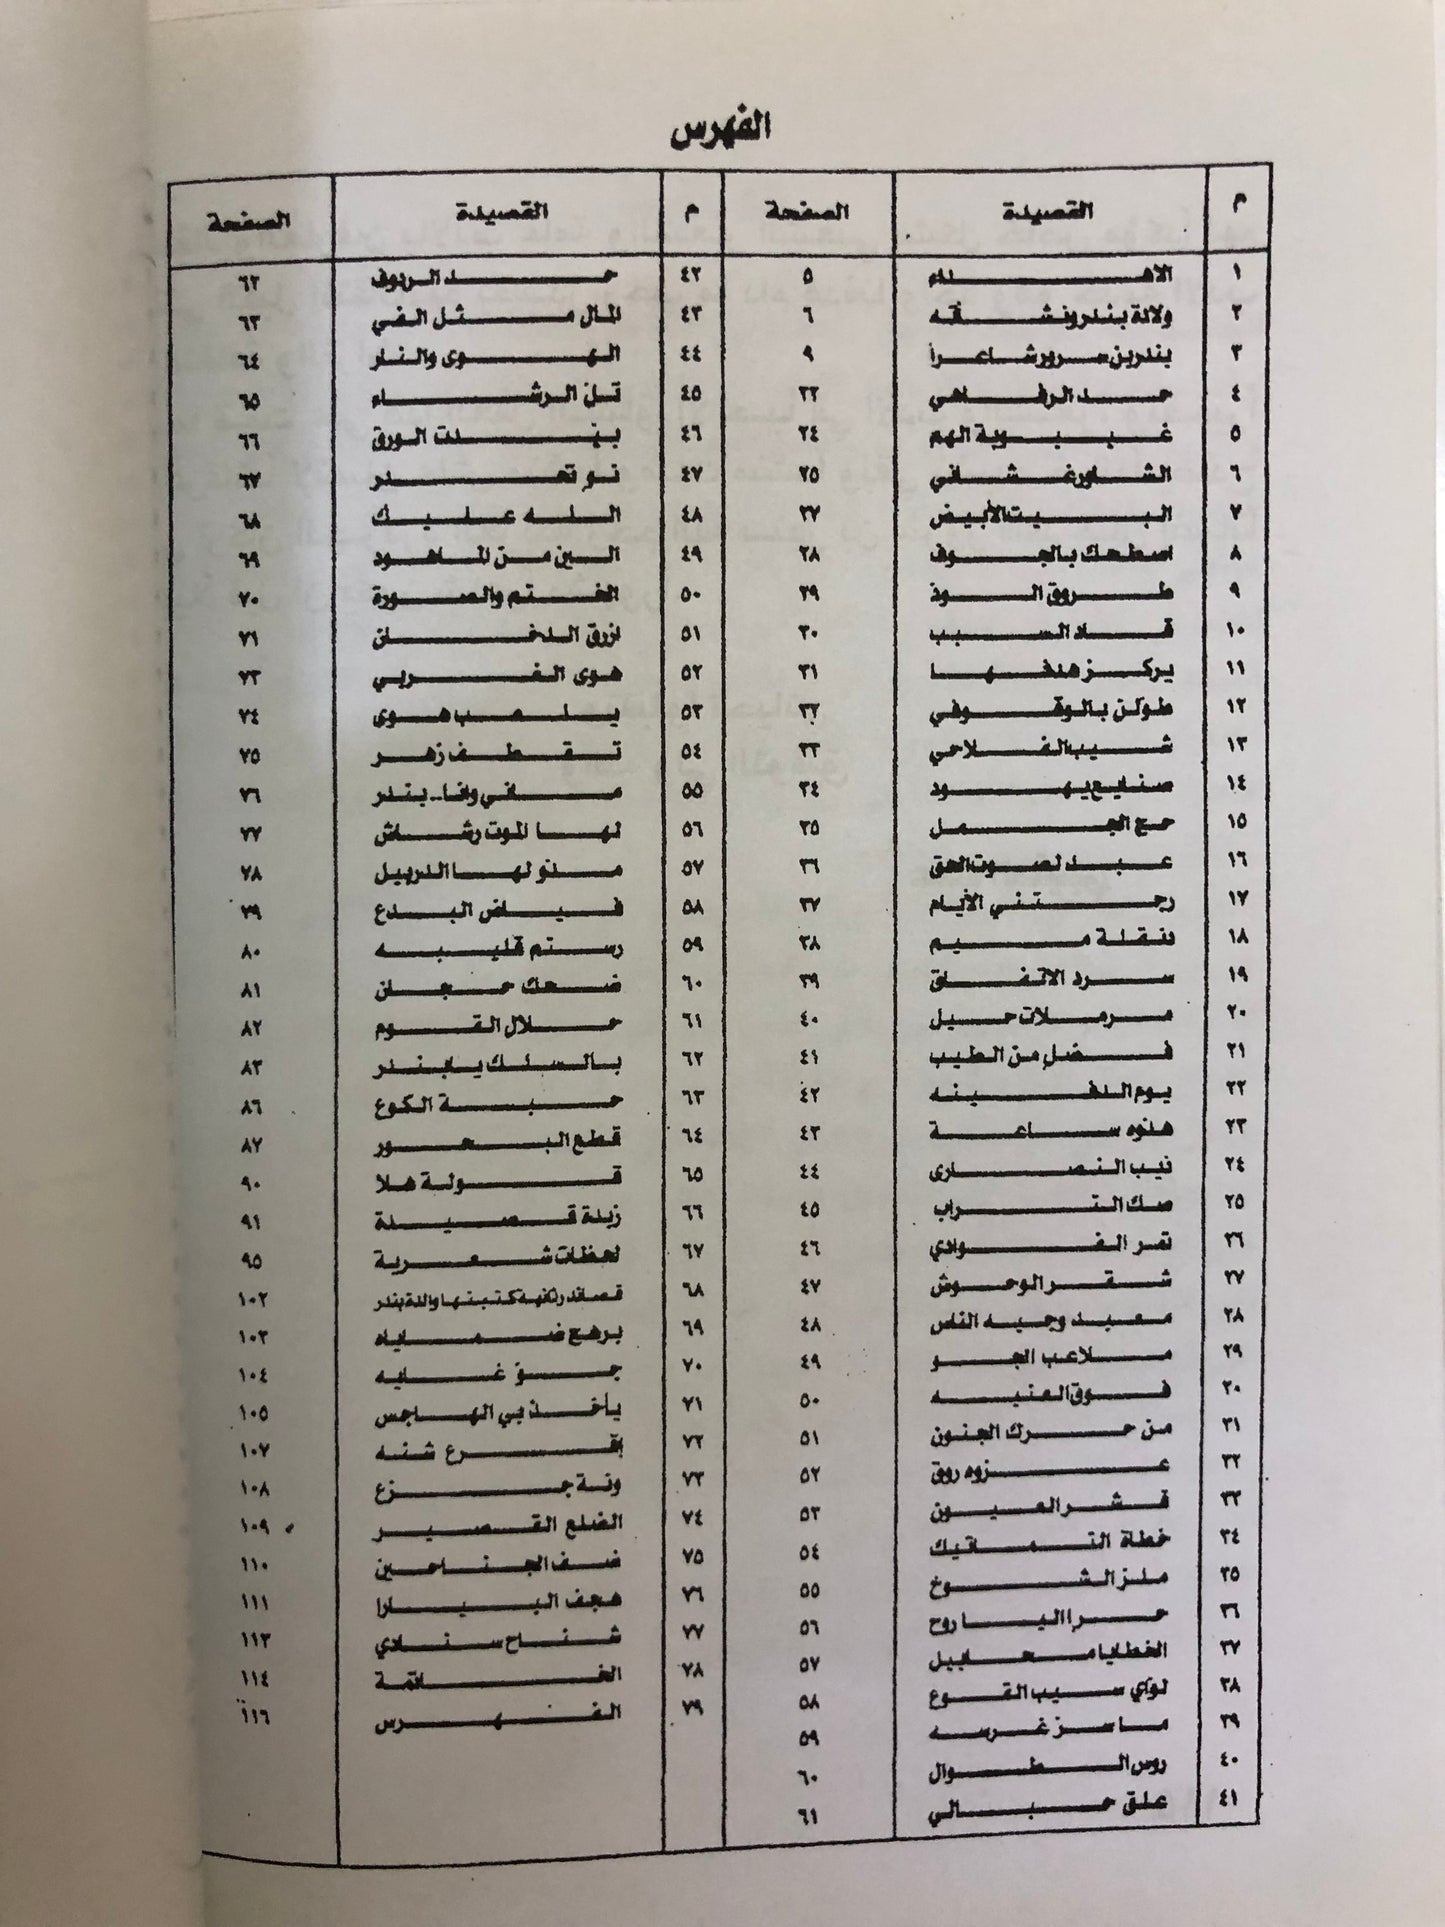 الفهرس
م القصيدة الصفحة م القصيدة الصفحة
١ الاهداء ٥ ٤٢ حد الريوف ٦٢
٢ ولادة بندر ونشأته ٦ ٤٣ المال مثل الفي ٦٣
٣ بندر بن سرور شاعراً ٩ ٤٤ الهوى والنار ٦٤
٤ حد الرفاهي ٢٢ ٤٥ تلن الرشاء ٦٥
٥ غيبوبة الهم ٢٤ ٤٦ بنت الورق ٦٦
٦ الشاور غشاني ٢٥ ٤٧ نو تحدر ٦٧
٧ البيت الأبيض ٢٧ ٤٨ الله عليك ٦٨
٨ اسطحك بالجوف ٢٨ ٤٩ البن من الماهود ٦٩
٩ طروق الوذ ٢٩ ٥٠ الختم والصورة ٧٠
١٠ قاد السبب ٣٠ ٥١ ازرق الدخان ٧١
١١ يركز هدفها ٣١ ٥٢ هوى الغربي ٧٣
١٢ طولن بالوقوفي ٣٢ ٥٣ يلعب هوى ٧٤
١٣ شيب الفلاحي ٣٣ ٥٤ تقطف زهر ٧٥
١٤ صنايع يهود ٣٤ ٥٥ ماني وانا.. بندر ٧٦
١٥ حج الجمل ٣٥ ٥٦ لها الموت رشاش ٧٧
١٦ عبد لصوت الحق ٣٦ ٥٧ مدنو لها الدربيل ٧٨
١٧ رجتني الأيام ٣٧ ٥٨ فياض البدع ٧٩
١٨ دنقلة ميم ٣٨ ٥٩ رستم قليبه ٨٠
١٩ سرد الاتفاق ٣٩ ٦٠ ضحك حجان ٨١
٢٠ مرملات حيل ٤٠ ٦١ حلال القوم ٨٢
٢١ فضل من الطيب ٤١ ٦٢ بالسلك يابندر ٨٣
٢٢ يوم الدفينه ٤٢ ٦٣ حبة الكوع ٨٦
٢٣ هذوه ساعة ٤٣ ٦٤ قطع البحور ٨٧
٢٤ نيب النصارى ٤٤ ٦٥ قولة هلا ٩٠
٢٥ صك التراب ٤٥ ٦٦ زبدة قصيدة ٩١
٢٦ تمر الفوادي ٤٦ ٦٧ لحظات شعرية ٩٥
٢٧ شقر الوحوش ٤٧ ٦٨ قصائد رثائية كتبتها والدة بندر ١٠٢
٢٨ معبد وجيه الناس ٤٨ ٦٩ برهج ضمايه ١٠٣
٢٩ ملاعب الجو ٤٩ ٧٠ جو غايه ١٠٤
٣٠ فوق العنيه ٥٠ ٧١ يأخذ بي الهاجس ١٠٥
٣١ من حرك الجنون ٥١ ٧٢ إقرع شنه ١٠٧
٣٢ عزوه روق ٥٢ ٧٣ ونة جزع ١٠٨
٣٣ قشر العيون ٥٣ ٧٤ الضلع القصير ١٠٩
٣٤ خطاة التماتيك ٥٤ ٧٥ ضف الجناحين ١١٠
٣٥ ملز الشوخ ٥٥ ٧٦ هجف البيارا ١١١
٣٦ حر اليا روح ٥٦ ٧٧ شناح سنادي ١١٣
٣٧ الخطايا محابيل ٥٧ ٧٨ الخاتمة ١١٤
٣٨ لواي سيب القوع ٥٨ ٧٩ الفهرس ١١٦
٣٩ ماسز غرسه ٥٩
٤٠ روس الطوال ٦٠
٤١ علق حبالي ٦١